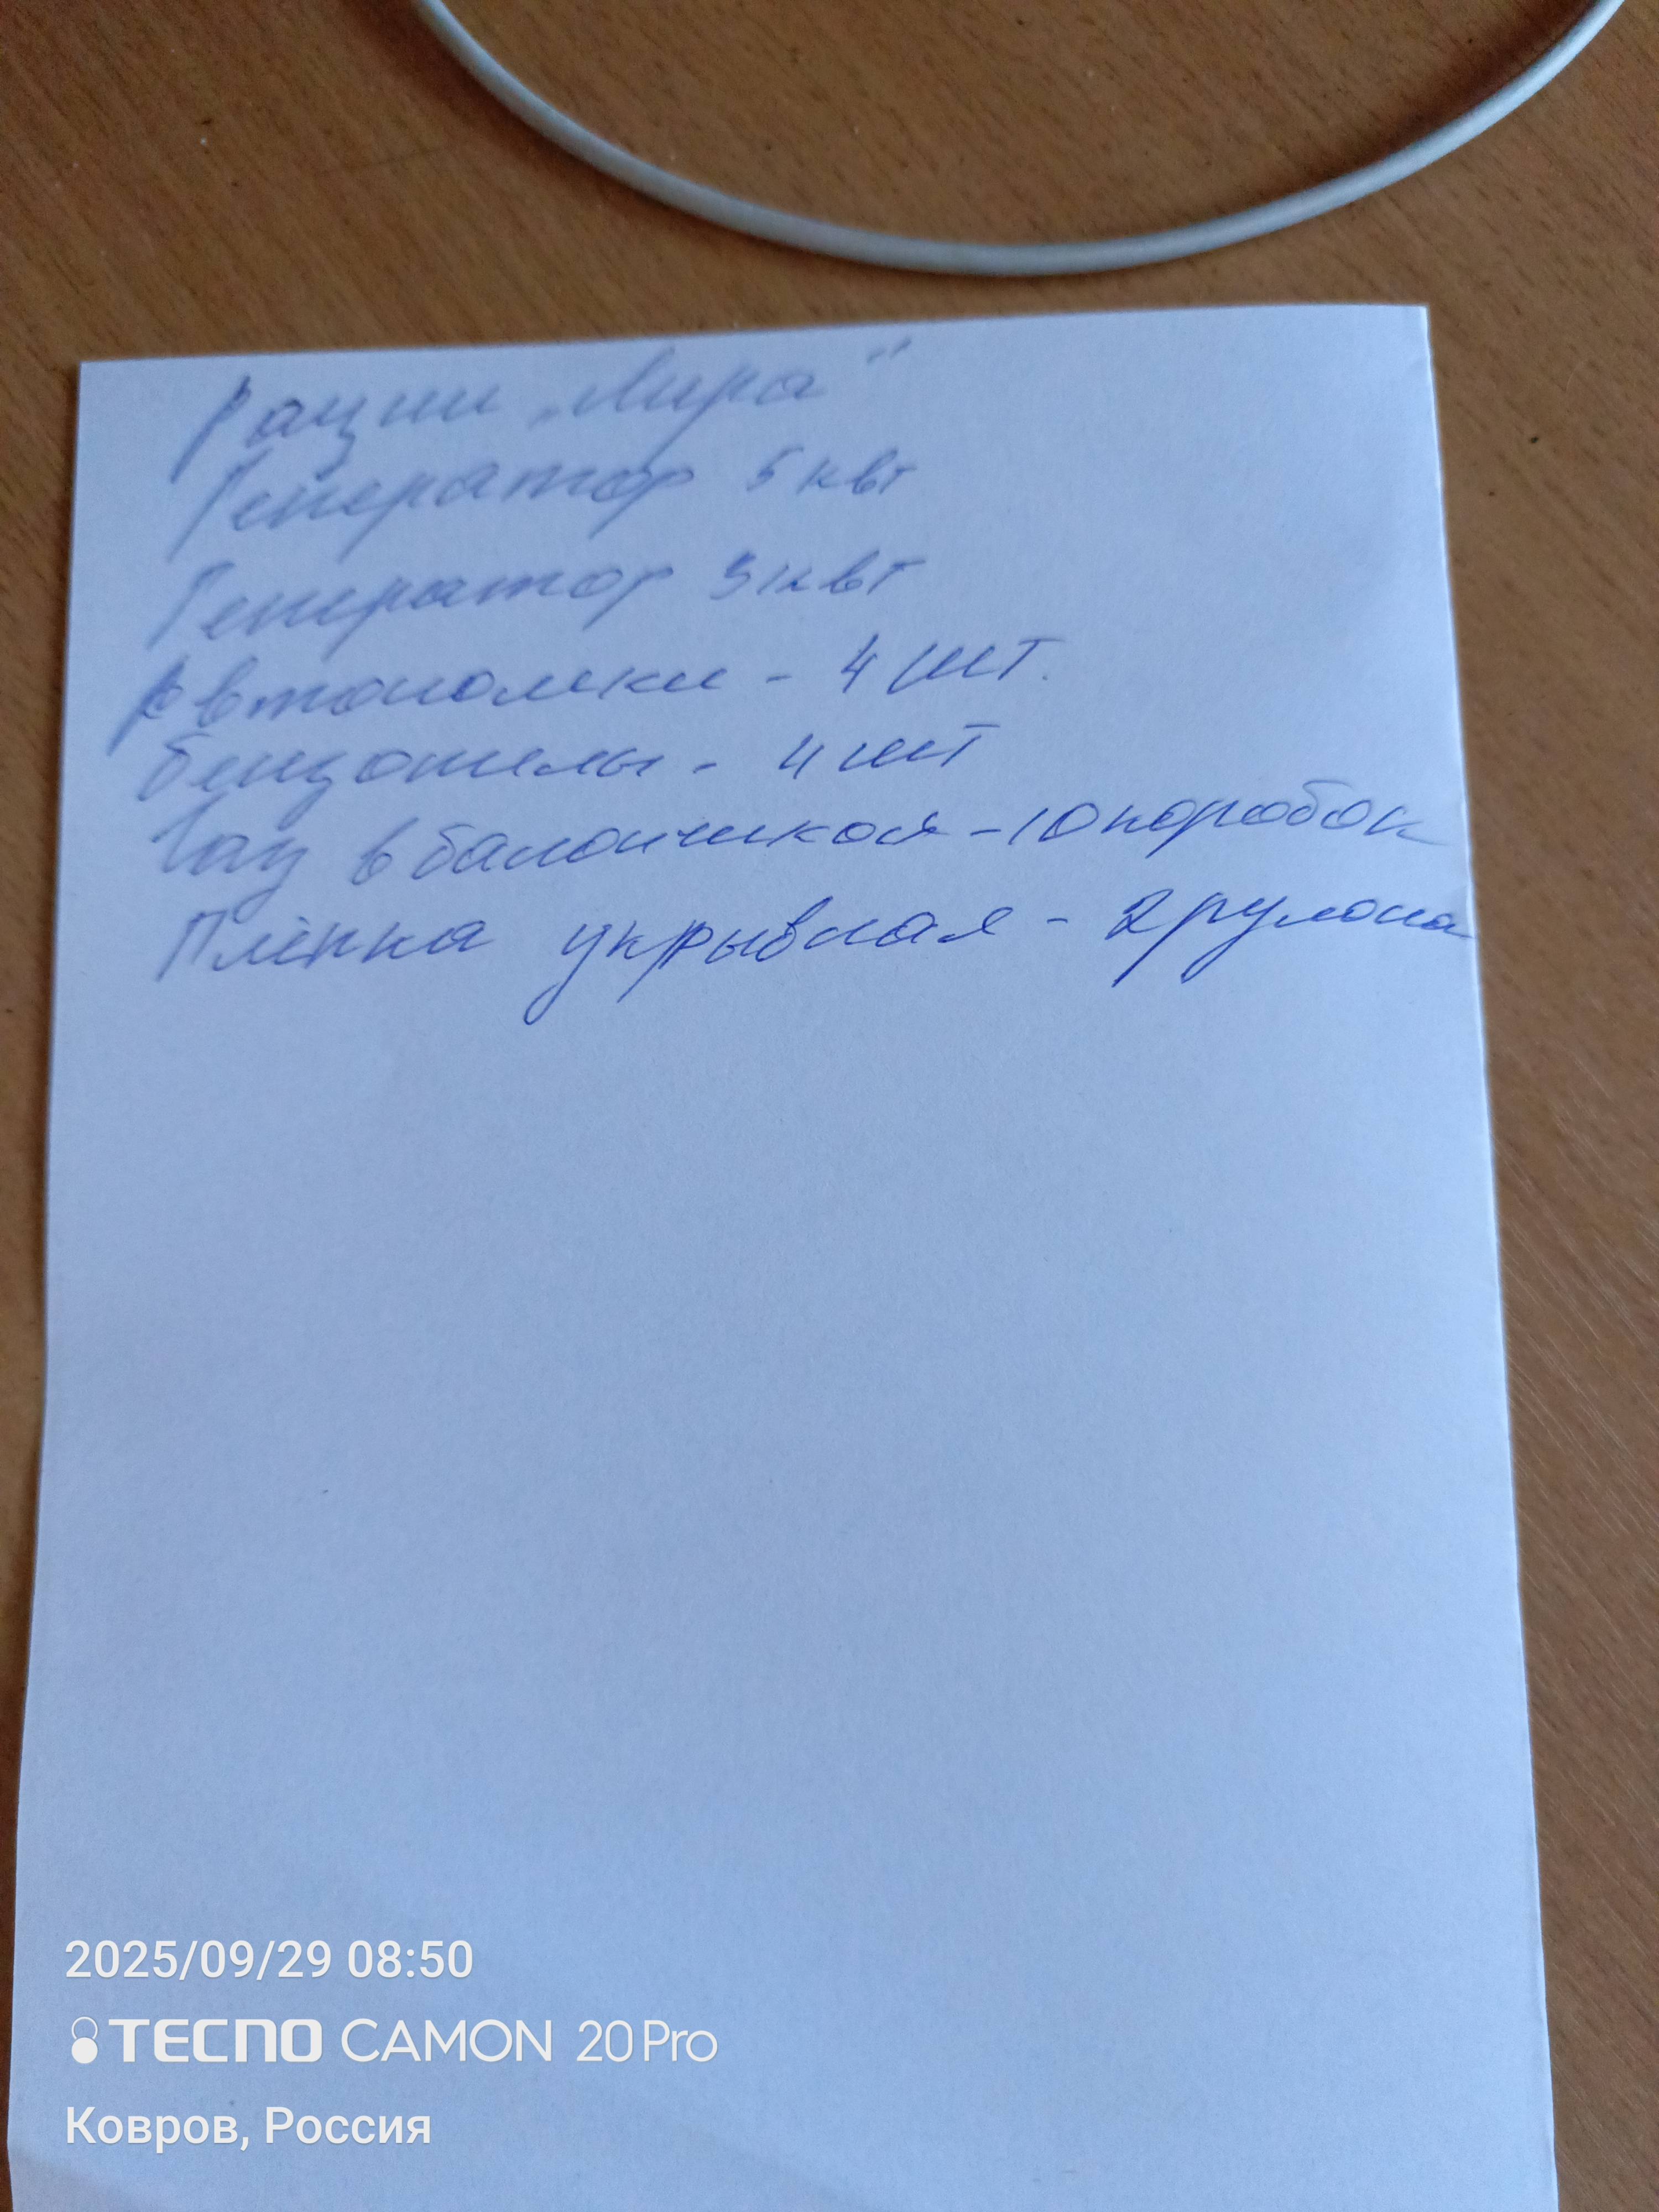 Рации "Лира"
Генератор 5 квт
Генератор 3 квт
Автономки - 4 шт.
Бензопилы - 4 шт
Газ в балончиках - 10 коробок
Плёнка укрывная - 2 рулона
2025/09/29 08:50
TECNO CAMON 20 Pro
Ковров, Россия